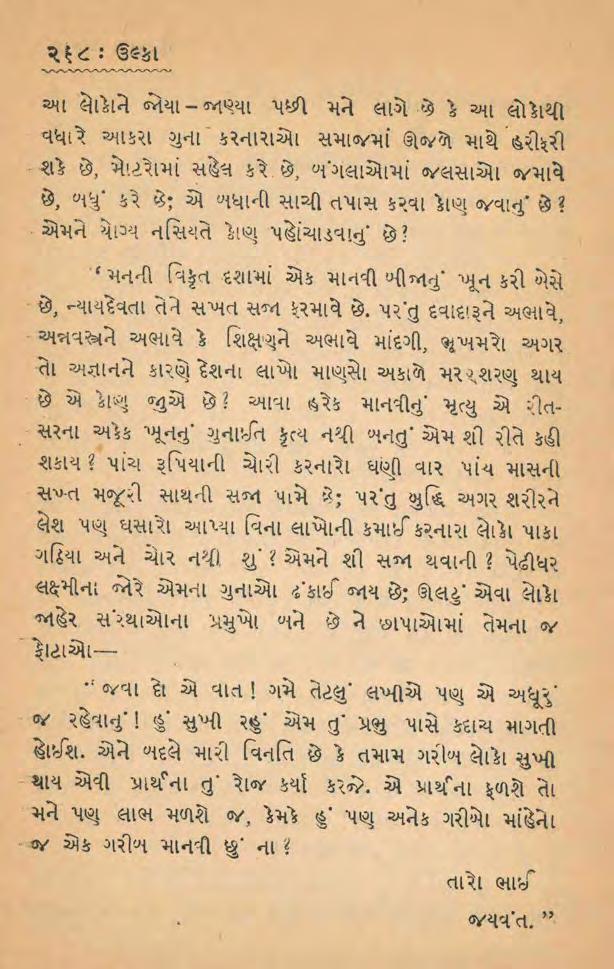 ૨૬૮ : ઉલ્કા
આ લોકોને જોયા – જાણ્યા પછી મને લાગે છે કે આ લોકોથી
વધારે આકરા ગુના કરનારાઓ સમાજમાં ઊજળે માથે હરીફરી
શકે છે, મોટરોમાં સહેલ કરે છે, બંગલાઓમાં જલસાઓ જમાવે
છે, બધું કરે છે; એ બધાની સાચી તપાસ કરવા કોણ જવાનું છે ?
એમને યોગ્ય નસિયતે કોણ પહોંચાડવાનું છે ?
‘ મનની વિકૃત દશામાં એક માનવી બીજાનું ખૂન કરી બેસે
છે, ન્યાયદેવતા તેને સખત સજા ફરમાવે છે. પરંતુ દવાદારૂને અભાવે,
અન્નવસ્ત્રને અભાવે કે શિક્ષણને અભાવે માંદગી, ભૂખમરો અગર
તો અજ્ઞાનને કારણે દેશના લાખો માણસો અકાળે મરણશરણ થાય
છે એ કોણ જુએ છે ? આવા હરેક માનવીનું મૃત્યુ એ રીત-
સરના અકેક ખૂનનું ગુનાઈત કૃત્ય નથી બનતું એમ શી રીતે કહી
શકાય ? પાંચ રૂપિયાની ચોરી કરનારો ઘણી વાર પાંચ માસની
સખ્ત મજૂરી સાથની સજા પામે છે; પરંતુ બુદ્ધિ અગર શરીરને
લેશ પણ ઘસારો આપ્યા વિના લાખોની કમાઈ કરનારા લોકો પાકા
ગઠિયા અને ચોર નથી શું ? એમને શી સજા થવાની ? પેઢીધર
લક્ષ્મીના જોરે એમના ગુનાઓ ઢંકાઈ જાય છે; ઊલટું એવા લોકો
જાહેર સંસ્થાઓના પ્રમુખો બને છે ને છાપાઓમાં તેમના જ
ફોટાઓ—
“ જવા દો એ વાત ! ગમે તેટલું લખીએ પણ એ અધૂરું
જ રહેવાનું ! હું સુખી રહું એમ તું પ્રભુ પાસે કદાચ માગતી
હોઈશ. એને બદલે મારી વિનતિ છે કે તમામ ગરીબ લોકો સુખી
થાય એવી પ્રાર્થના તું રોજ કર્યા કરજે. એ પ્રાર્થના ફળશે તો
મને પણ લાભ મળશે જ, કેમકે હું પણ અનેક ગરીબો માંહેનો
જ એક ગરીબ માનવી છું ના ?
તારો ભાઈ
જયવંત. ”